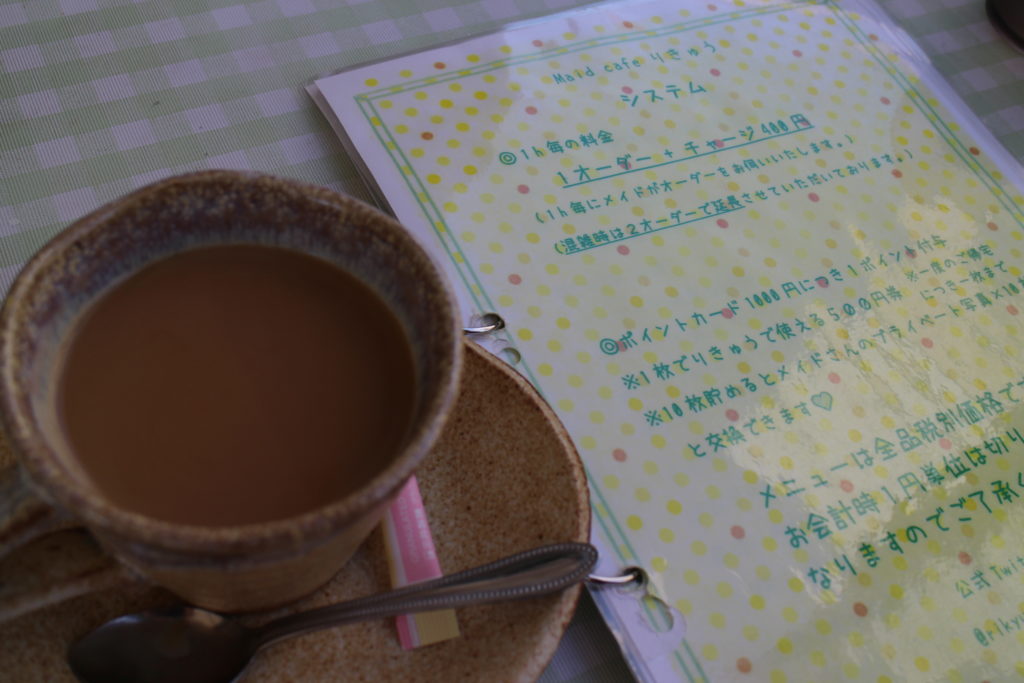 Maid cafe りきゅう
システム
◎1h毎の料金
1オーダー + チャージ400円
(1h毎にメイドがオーダーをお伺いいたします。)
(混雑時は2オーダーで延長させていただいております。)
◎ポイントカード1000円につき1ポイント付与
※1枚でりきゅうで使える500円券 ※一度のご帰宅
につき一枚まで
※10枚貯めるとメイドさんのプライベート写真×10
と交換できます♡
メニューは全品税別価格で
お会計時1円単位は切り
なりますのでご了承く
公式Twit
@riky